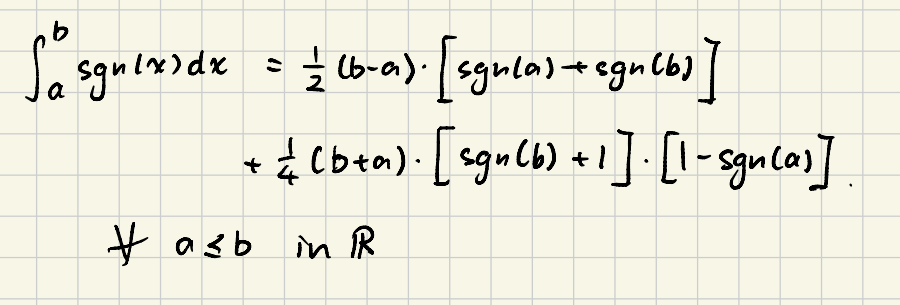 ∫_a^b sgn(x)dx = 1/2 (b-a)·[sgn(a)+sgn(b)]
+ 1/4 (b+a)·[sgn(b)+1]·[1-sgn(a)].
∀ a≤b in ℝ